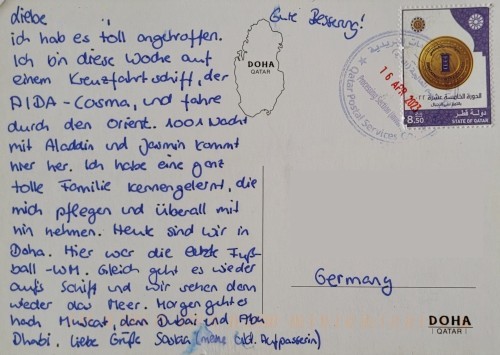 Liebe
ich hab es toll angetroffen.
Ich bin diese Woche auf
einem Kreuzfahrtschiff, der
AIDA-Cosma, und fahre
durch den Orient. 1001 Nacht
mit Aladdin und Jasmin kommt
hier her. Ich habe eine ganz
tolle Familie kennengelernt, die
mich pflegen und überall mit
hin nehmen. Heute sind wir in
Doha. Hier war die letzte Fuß-
ball-WM. Gleich geht es wieder
aufs Schiff und wir sehen dann
wieder das Meer. Morgen geht es
nach Muscat, dann Dubai und Abu
Dhabi. Liebe Grüße
Aufpasserin)
Gute Besserung!
DOHA
QATAR
Qatar Postal Services
16 APR 2023
دولة قطر
8.50
STATE OF QATAR
Germany
DOHA
QATAR